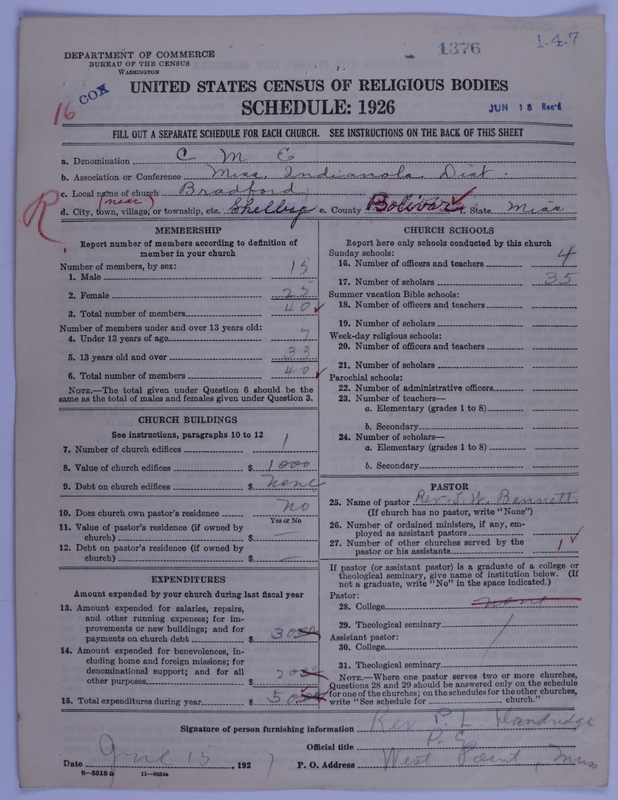 1376
1-4-7
DEPARTMENT OF COMMERCE
BUREAU OF THE CENSUS
WASHINGTON
16 COX
UNITED STATES CENSUS OF RELIGIOUS BODIES
SCHEDULE: 1926
JUN 18 Rec'd
FILL OUT A SEPARATE SCHEDULE FOR EACH CHURCH. SEE INSTRUCTIONS ON THE BACK OF THIS SHEET
a. Denomination C M E
b. Association or Conference Miss. Indianola Dist.
c. Local name of church Bradford
R (near)
d. City, town, village, or township, etc. Shelby e. County Bolivar f. State Miss
MEMBERSHIP
Report number of members according to definition of
member in your church
Number of members, by sex:
1. Male 15
2. Female 25
3. Total number of members 40
Number of members under and over 13 years old:
4. Under 13 years of age 7
5. 13 years old and over 33
6. Total number of members 40
NOTE.—The total given under Question 6 should be the
same as the total of males and females given under Question 3.
CHURCH BUILDINGS
See instructions, paragraphs 10 to 12
7. Number of church edifices 1
8. Value of church edifices $ 1000
9. Debt on church edifices $ none
10. Does church own pastor's residence? No
Yes or No
11. Value of pastor's residence (if owned by
church) $ —
12. Debt on pastor's residence (if owned by
church) $ —
EXPENDITURES
Amount expended by your church during last fiscal year
13. Amount expended for salaries, repairs,
and other running expenses; for im-
provements or new buildings; and for
payments on church debt $ 3000
14. Amount expended for benevolences, in-
cluding home and foreign missions; for
denominational support; and for all
other purposes $ 2000
15. Total expenditures during year $ 5000
CHURCH SCHOOLS
Report here only schools conducted by this church
Sunday schools:
16. Number of officers and teachers 4
17. Number of scholars 35
Summer vacation Bible schools:
18. Number of officers and teachers
19. Number of scholars
Week-day religious schools:
20. Number of officers and teachers
21. Number of scholars
Parochial schools:
22. Number of administrative officers
23. Number of teachers—
a. Elementary (grades 1 to 8)
b. Secondary
24. Number of scholars—
a. Elementary (grades 1 to 8)
b. Secondary
PASTOR
25. Name of pastor Rev. J. W. Bennett
(If church has no pastor, write "None")
26. Number of ordained ministers, if any, em-
ployed as assistant pastors
27. Number of other churches served by the
pastor or his assistants 1
If pastor (or assistant pastor) is a graduate of a college or
theological seminary, give name of institution below. (If
not a graduate, write "No" in the space indicated.)
Pastor:
28. College none
29. Theological seminary
Assistant pastor:
30. College
31. Theological seminary
NOTE.—Where one pastor serves two or more churches,
Questions 28 and 29 should be answered only on the schedule
for one of the churches; on the schedules for the other churches,
write "See schedule for church."
Signature of person furnishing information Rev P. L. Dandridge
Official title P. E.
Date June 15, 1927 P. O. Address West Point, Miss
8—5518a 11—9554a